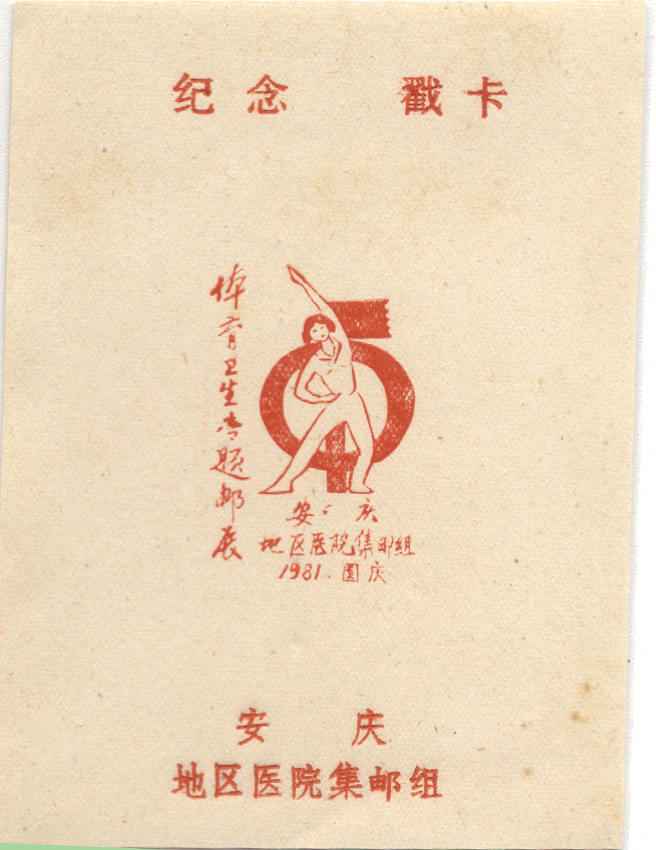 纪念 戳卡
体育卫生专题邮展
安庆
地区医院集邮组
1981.国庆
安 庆
地区医院集邮组